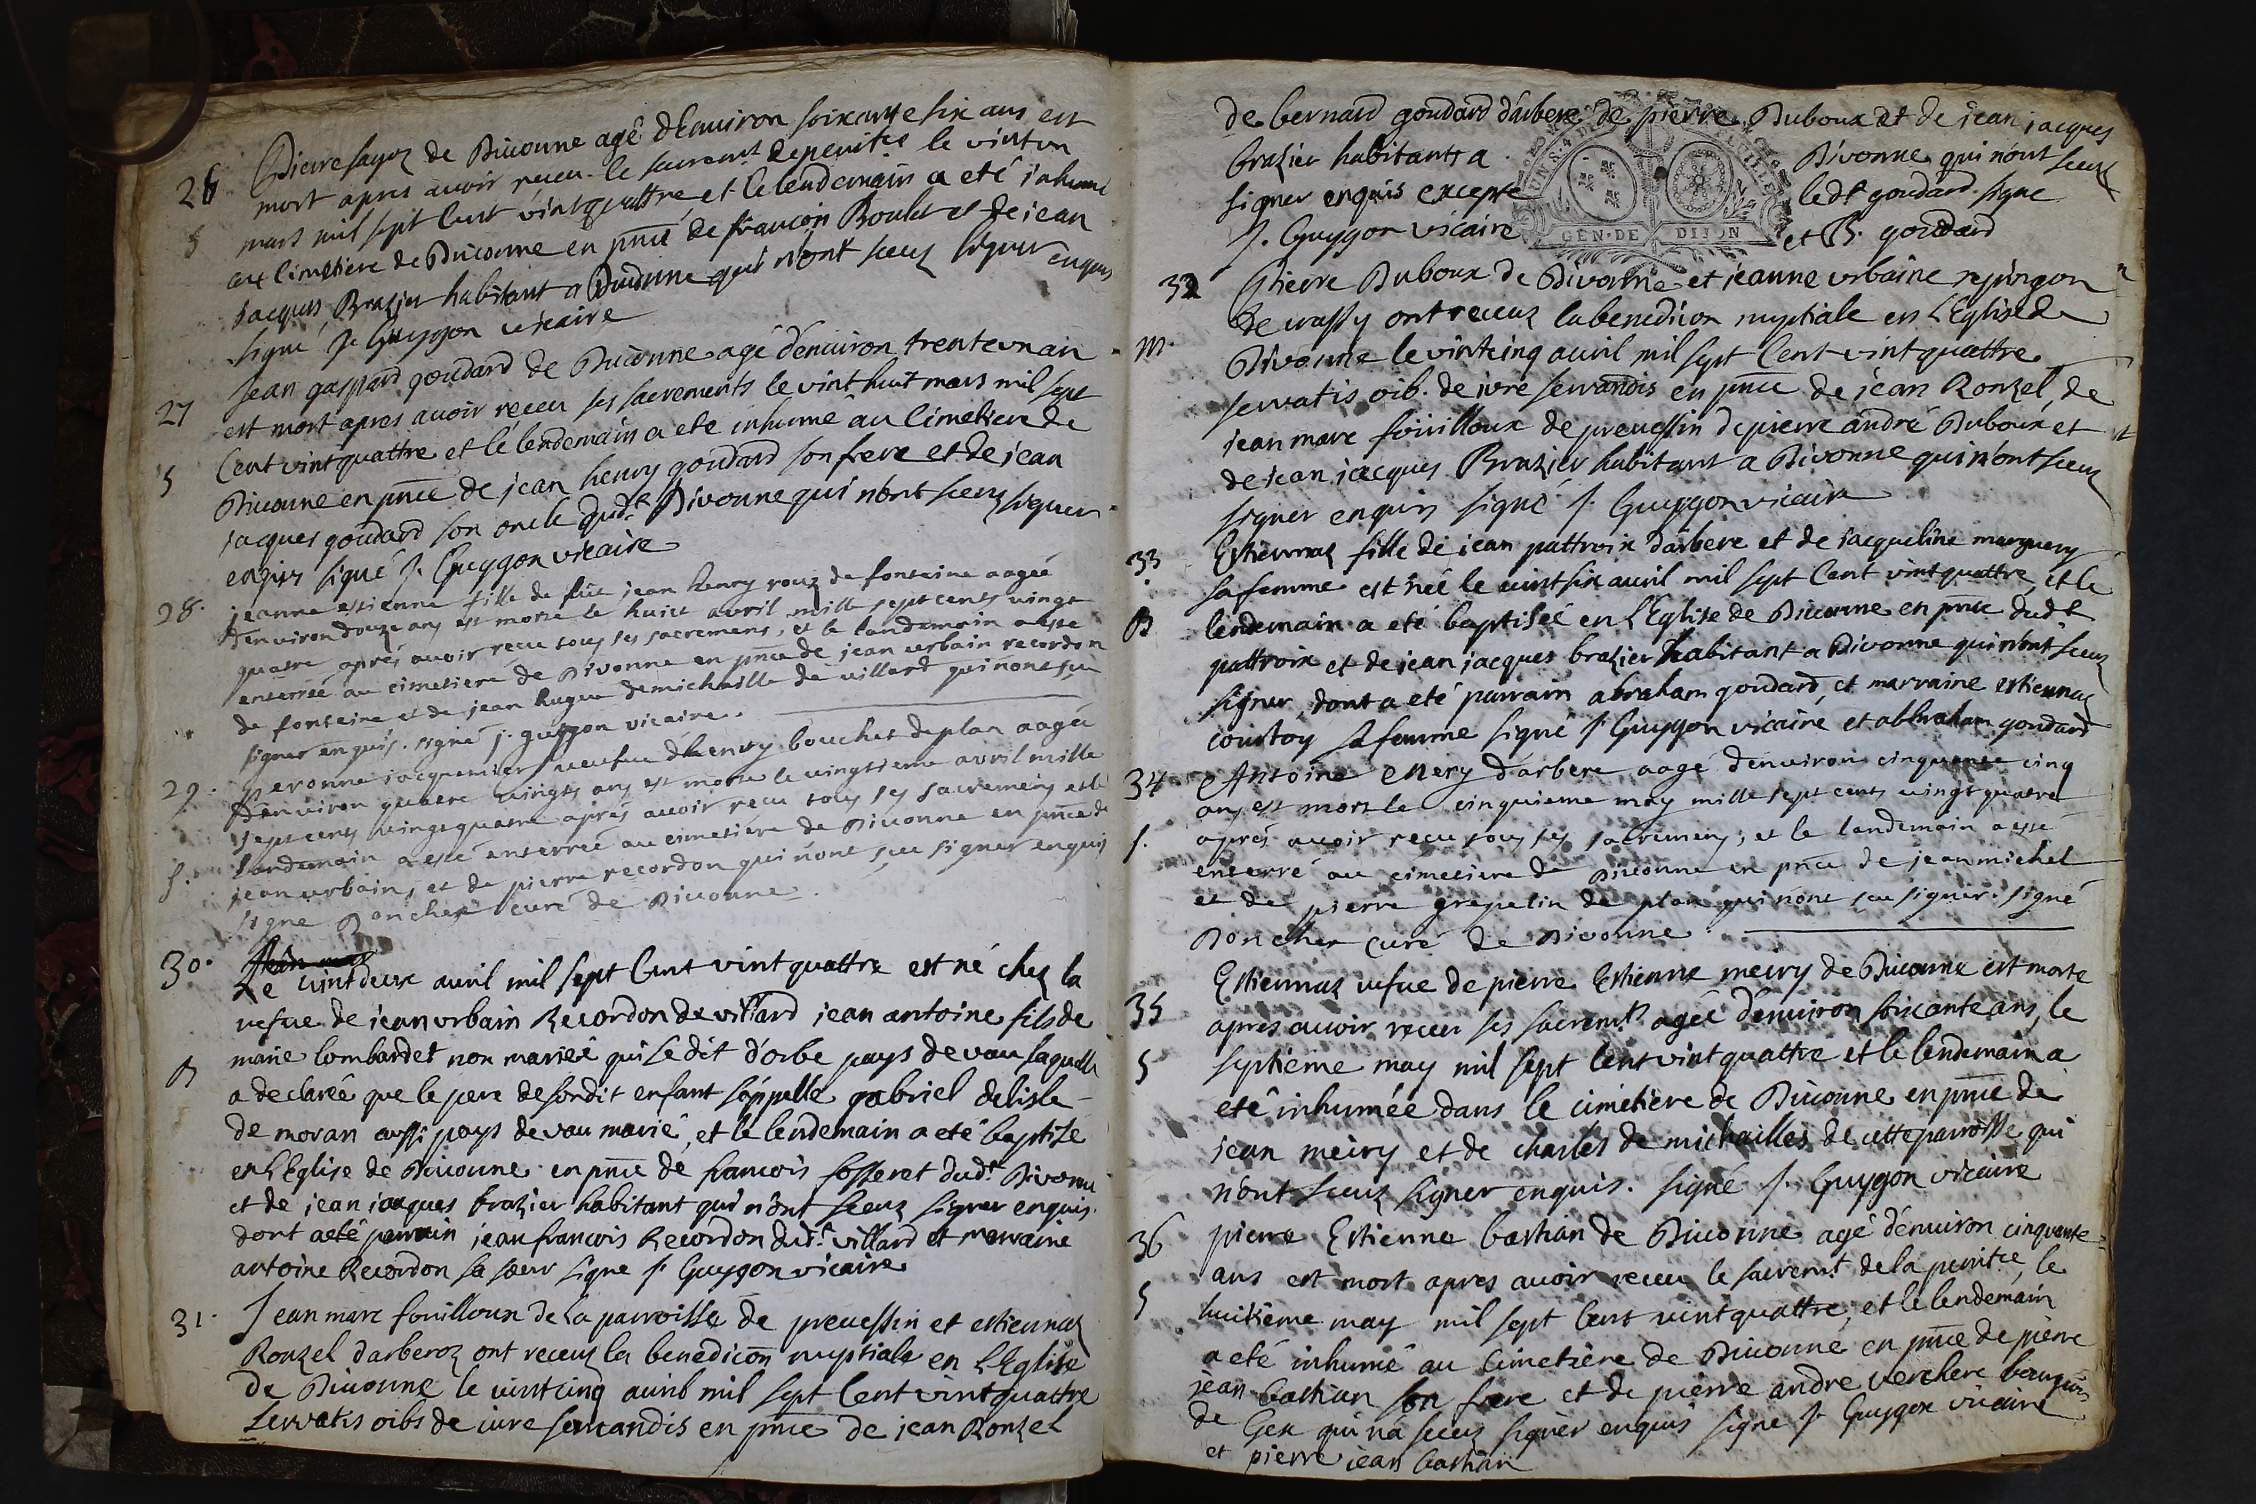 26 Pierre fayoz de Divonne agé d'Environ soixante six ans est
mort apres avoir receu le sacremt de penitce le vint un
S mars mil sept Cent vint quattre et le lendemain a eté inhumé
au Cimetiere de Divonne en pnce de francois Boulet et de jean
jacques Brazier habitant a Divonne qui n'ont sceuz signer enquis
signé J. Guygon vicaire
27 Jean gaspard goudard de Divonne agé d'enuiron trente un an
est mort apres avoir receu ses sacrements le vint huit mars mil sept
S Cent vint quattre et le lendemain a eté inhumé au Cimetiere de
Divonne en pnce de jean henry goudard son frere et de jean
jacques goudard son oncle dudt Divonne qui n'ont sceuz signer
enquis signé J. Guygon vicaire
28. jeanne estienne fille de fut jean henry rouz de fonteine aagée
d'environ douze ans est morte le huict avril mille sept cents vingt
quatre aprés avoir receu tous ses sacremens, et le landemain a esté
enterrée au cimetiere de Divonne en pnce de jean urbain recordon
de fonteine et de jean hugue demichaille de villard qui n'ont sçu
signer enquis. signé j. guygon vicaire.
29. peronne jacquemier veufue d'henry bouchet de plan aagée
d'environ quatre vingts ans est morte le vingtieme avril mille
sept cents vingt quatre aprés avoir receu tous ses sacremens et le
S. landemain a esté enterrée au cimetiére de Divonne en pnce de
jean urbain, et de pierre recordon qui n'ont sçu signer enquis
signé Doncher curé de Divonne.
30. Le vint deux avril mil sept Cent vint quattre est né chez la
vefve de jean urbain Recordon de villard jean antoine fils de
B marie lombardet non mariée qui se dit d'orbe pays de vau laquelle
a declarée que le pere de sondit enfant s'appelle gabriel delisle
de moran aussi pays de vau marié, et le lendemain a eté baptizé
en l'Eglise de Divonne en pnce de francois fosseret dudt Divonne
et de jean jacques brazier habitant qui n'ont sceuz signer enquis.
dont a eté parrain jean francois Recordon dudt villard et marraine
antoine Recordon sa soeur signe J. Guygon vicaire
31. Jean marc fouilloux de la parroisse de prevessin et estiennaz
Ronzel d'arberoz ont receuz la benedicon nuptiale en l'Eglise
de Divonne le vint cinq avril mil sept Cent vint quattre
servatis oibs de iure servandis en pnce de jean Ronzel
de bernard goudard d'arbere de pierre Duboux et de jean jacques
brazier habitants a Divonne qui n'ont sceuz
signer enquis excepte ledt goudard. signe
J. Guygon vicaire et B. goudard
GEN·DE DIJON
32 Pierre Duboux de Divonne et jeanne urbaine rejingon
de crassy ont receuz la benedicion nuptiale en l'Eglise de
m. Divonne le vint cinq avril mil sept Cent vint quattre
servatis oib. de iure servandis en pnce de jean Ronzel, de
jean marc fouilloux de prevessin de pierre andré Duboux et
de jean jacques Brazier habitant a Divonne qui n'ont sceuz
signer enquis signé J. Guygon vicaire
33 Estiennaz fille de jean pattroix d'arbere et de jacqueline marguery
sa femme est née le vint six avril mil sept Cent vint quattre, et le
B lendemain a eté baptisée en l'Eglise de Divonne en pnce dudt
pattroix et de jean jacques brazier habitant a Divonne qui n'ont sceuz
signer, dont a eté parrain abraham goudard, et marraine estiennaz
courtoy sa femme signé J. Guygon vicaire et abbraham goudard
34 Antoine Mery d'arbere aagé d'environ cinquante cinq
ans est mort le cinquieme may mille sept cents vingt quatre
S. aprés avoir receu tous ses sacremens, et le landemain a esté
enterré au cimetiere de Divonne en pnce de jean michel
et de pierre grepelin de plan qui n'ont sçu signer. signé
Doncher curé de Divonne.
Estiennaz vefve de pierre Estienne meiry de Divonne est morte
35 apres avoir receu ses sacremts agée d'enuiron soixante ans, le
S septieme may mil sept Cent vint quattre et le lendemain a
eté inhumée dans le cimetiere de Divonne en pnce de
jean meiry et de charles de michailles de cette parroisse qui
n'ont sceuz signer enquis. signé J. Guygon vicaire
36 pierre Estienne bastian de Divonne agé d'enuiron cinquante
ans est mort apres avoir receu le sacremt de la penitce, le
S huitieme may mil sept Cent vint quattre, et le lendemain
a eté inhumé au Cimetiere de Divonne en pnce de pierre
jean bastian son frere et de pierre andre verchere bourgeois
de Gex qui n'a sceuz signer enquis signe J. Guygon vicaire
et pierre jean bastian